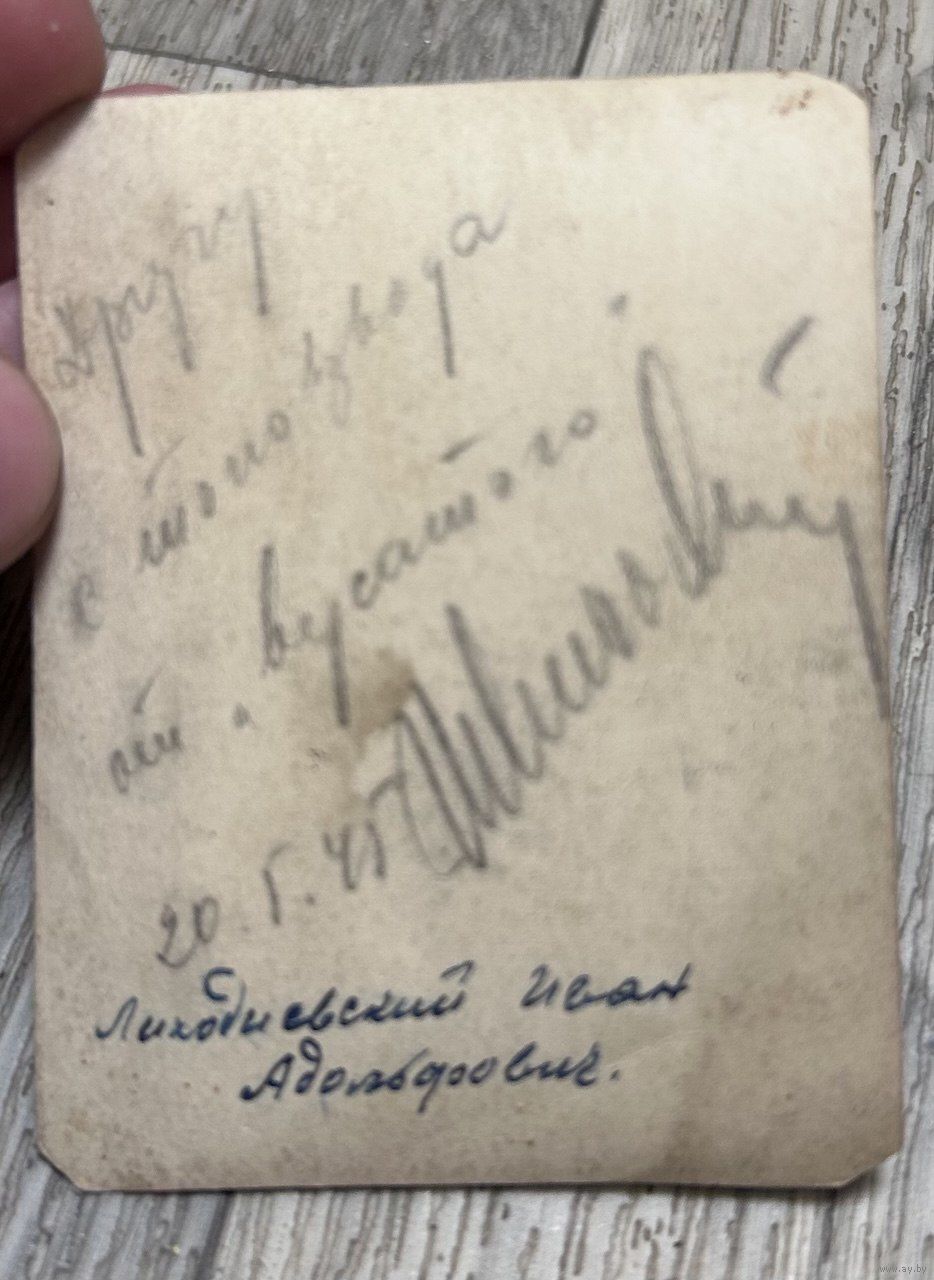 Другу
с того взвода
от "вусатого"
20.5.45
Лиходиевский Иван
Адольфович.
www.ay.by